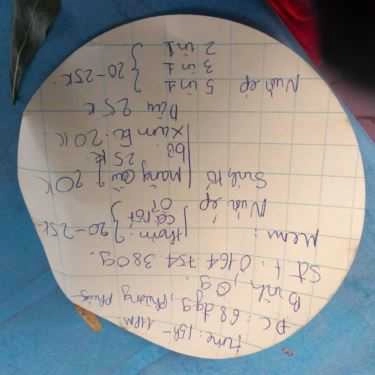 Time: 15h - 11PM
ĐC: 68 đg 9, Phường Phước
Bình Q9.
Sđt: 0164 754 3809.
Menu:
thơm
Nước ép cà rốt } 20-25k
ổi
Sinh tố mãng cầu } 20K
bơ: 25k
20K
Dâu 25k
Nước ép 5 in 1
3 in 1 } 20-25k
2 in 1